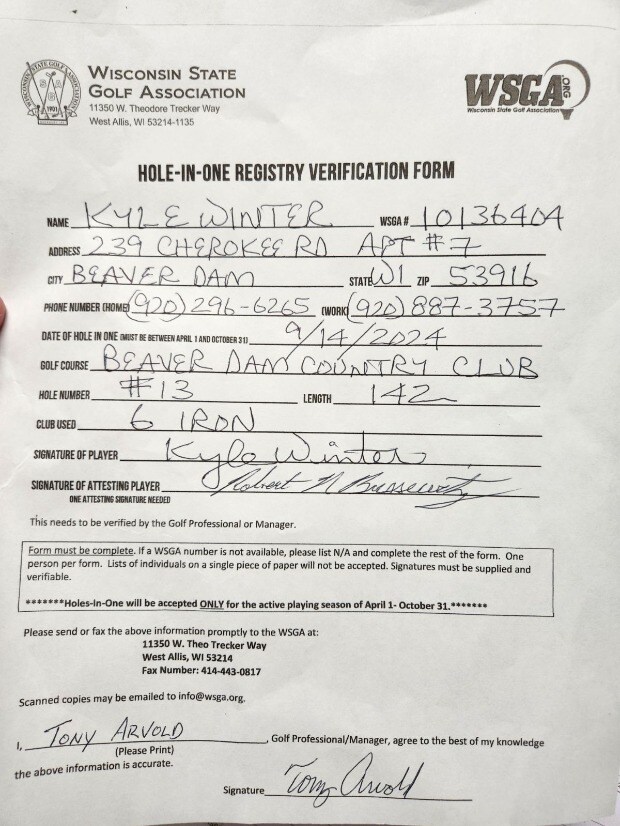 WISCONSIN STATE GOLF ASSOCIATION
1901
WISCONSIN STATE
GOLF ASSOCIATION
11350 W. Theodore Trecker Way
West Allis, WI 53214-1135
WSGA.ORG
Wisconsin State Golf Association
HOLE-IN-ONE REGISTRY VERIFICATION FORM
NAME KYLE WINTER WSGA # 10136404
ADDRESS 239 CHEROKEE RD APT #7
CITY BEAVER DAM STATE WI ZIP 53916
PHONE NUMBER (HOME) (920) 296-6265 (WORK) (920) 887-3757
DATE OF HOLE IN ONE (MUST BE BETWEEN APRIL 1 AND OCTOBER 31) 9/14/2024
GOLF COURSE BEAVER DAM COUNTRY CLUB
HOLE NUMBER #13 LENGTH 142
CLUB USED 6 IRON
SIGNATURE OF PLAYER Kyle Winter
SIGNATURE OF ATTESTING PLAYER Robert N
ONE ATTESTING SIGNATURE NEEDED
This needs to be verified by the Golf Professional or Manager.
Form must be complete. If a WSGA number is not available, please list N/A and complete the rest of the form. One
person per form. Lists of individuals on a single piece of paper will not be accepted. Signatures must be supplied and
verifiable.
*******Holes-In-One will be accepted ONLY for the active playing season of April 1- October 31.*******
Please send or fax the above information promptly to the WSGA at:
11350 W. Theo Trecker Way
West Allis, WI 53214
Fax Number: 414-443-0817
Scanned copies may be emailed to info@wsga.org.
I, TONY ARVOLD, Golf Professional/Manager, agree to the best of my knowledge
(Please Print)
the above information is accurate.
Signature Tony Arvold